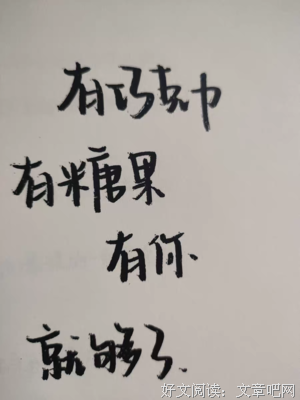 有巧克巾
有糖果
有你
就够了.
好文阅读：文章吧网